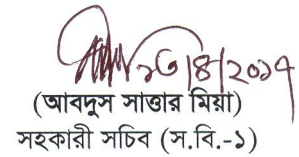 ২৩/৪/২০১৭
(আবদুস সাত্তার মিয়া)
সহকারী সচিব (স.বি.-১)